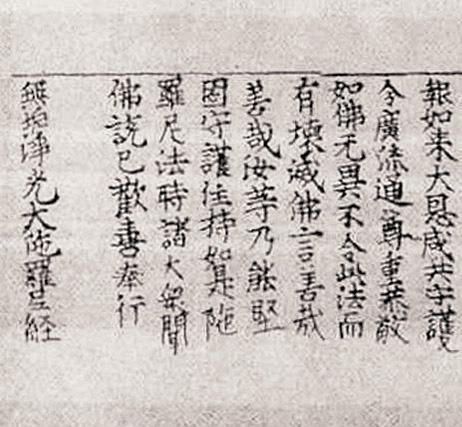 報如来大恩咸共守護
令廣流通尊重恭敬
如佛无異不令此法而
有壞滅佛言善哉
善哉汝等乃能堅
固守護住持如是陁
羅尼法時諸大衆聞
佛說已歡喜奉行
無垢淨光大陁羅尼経